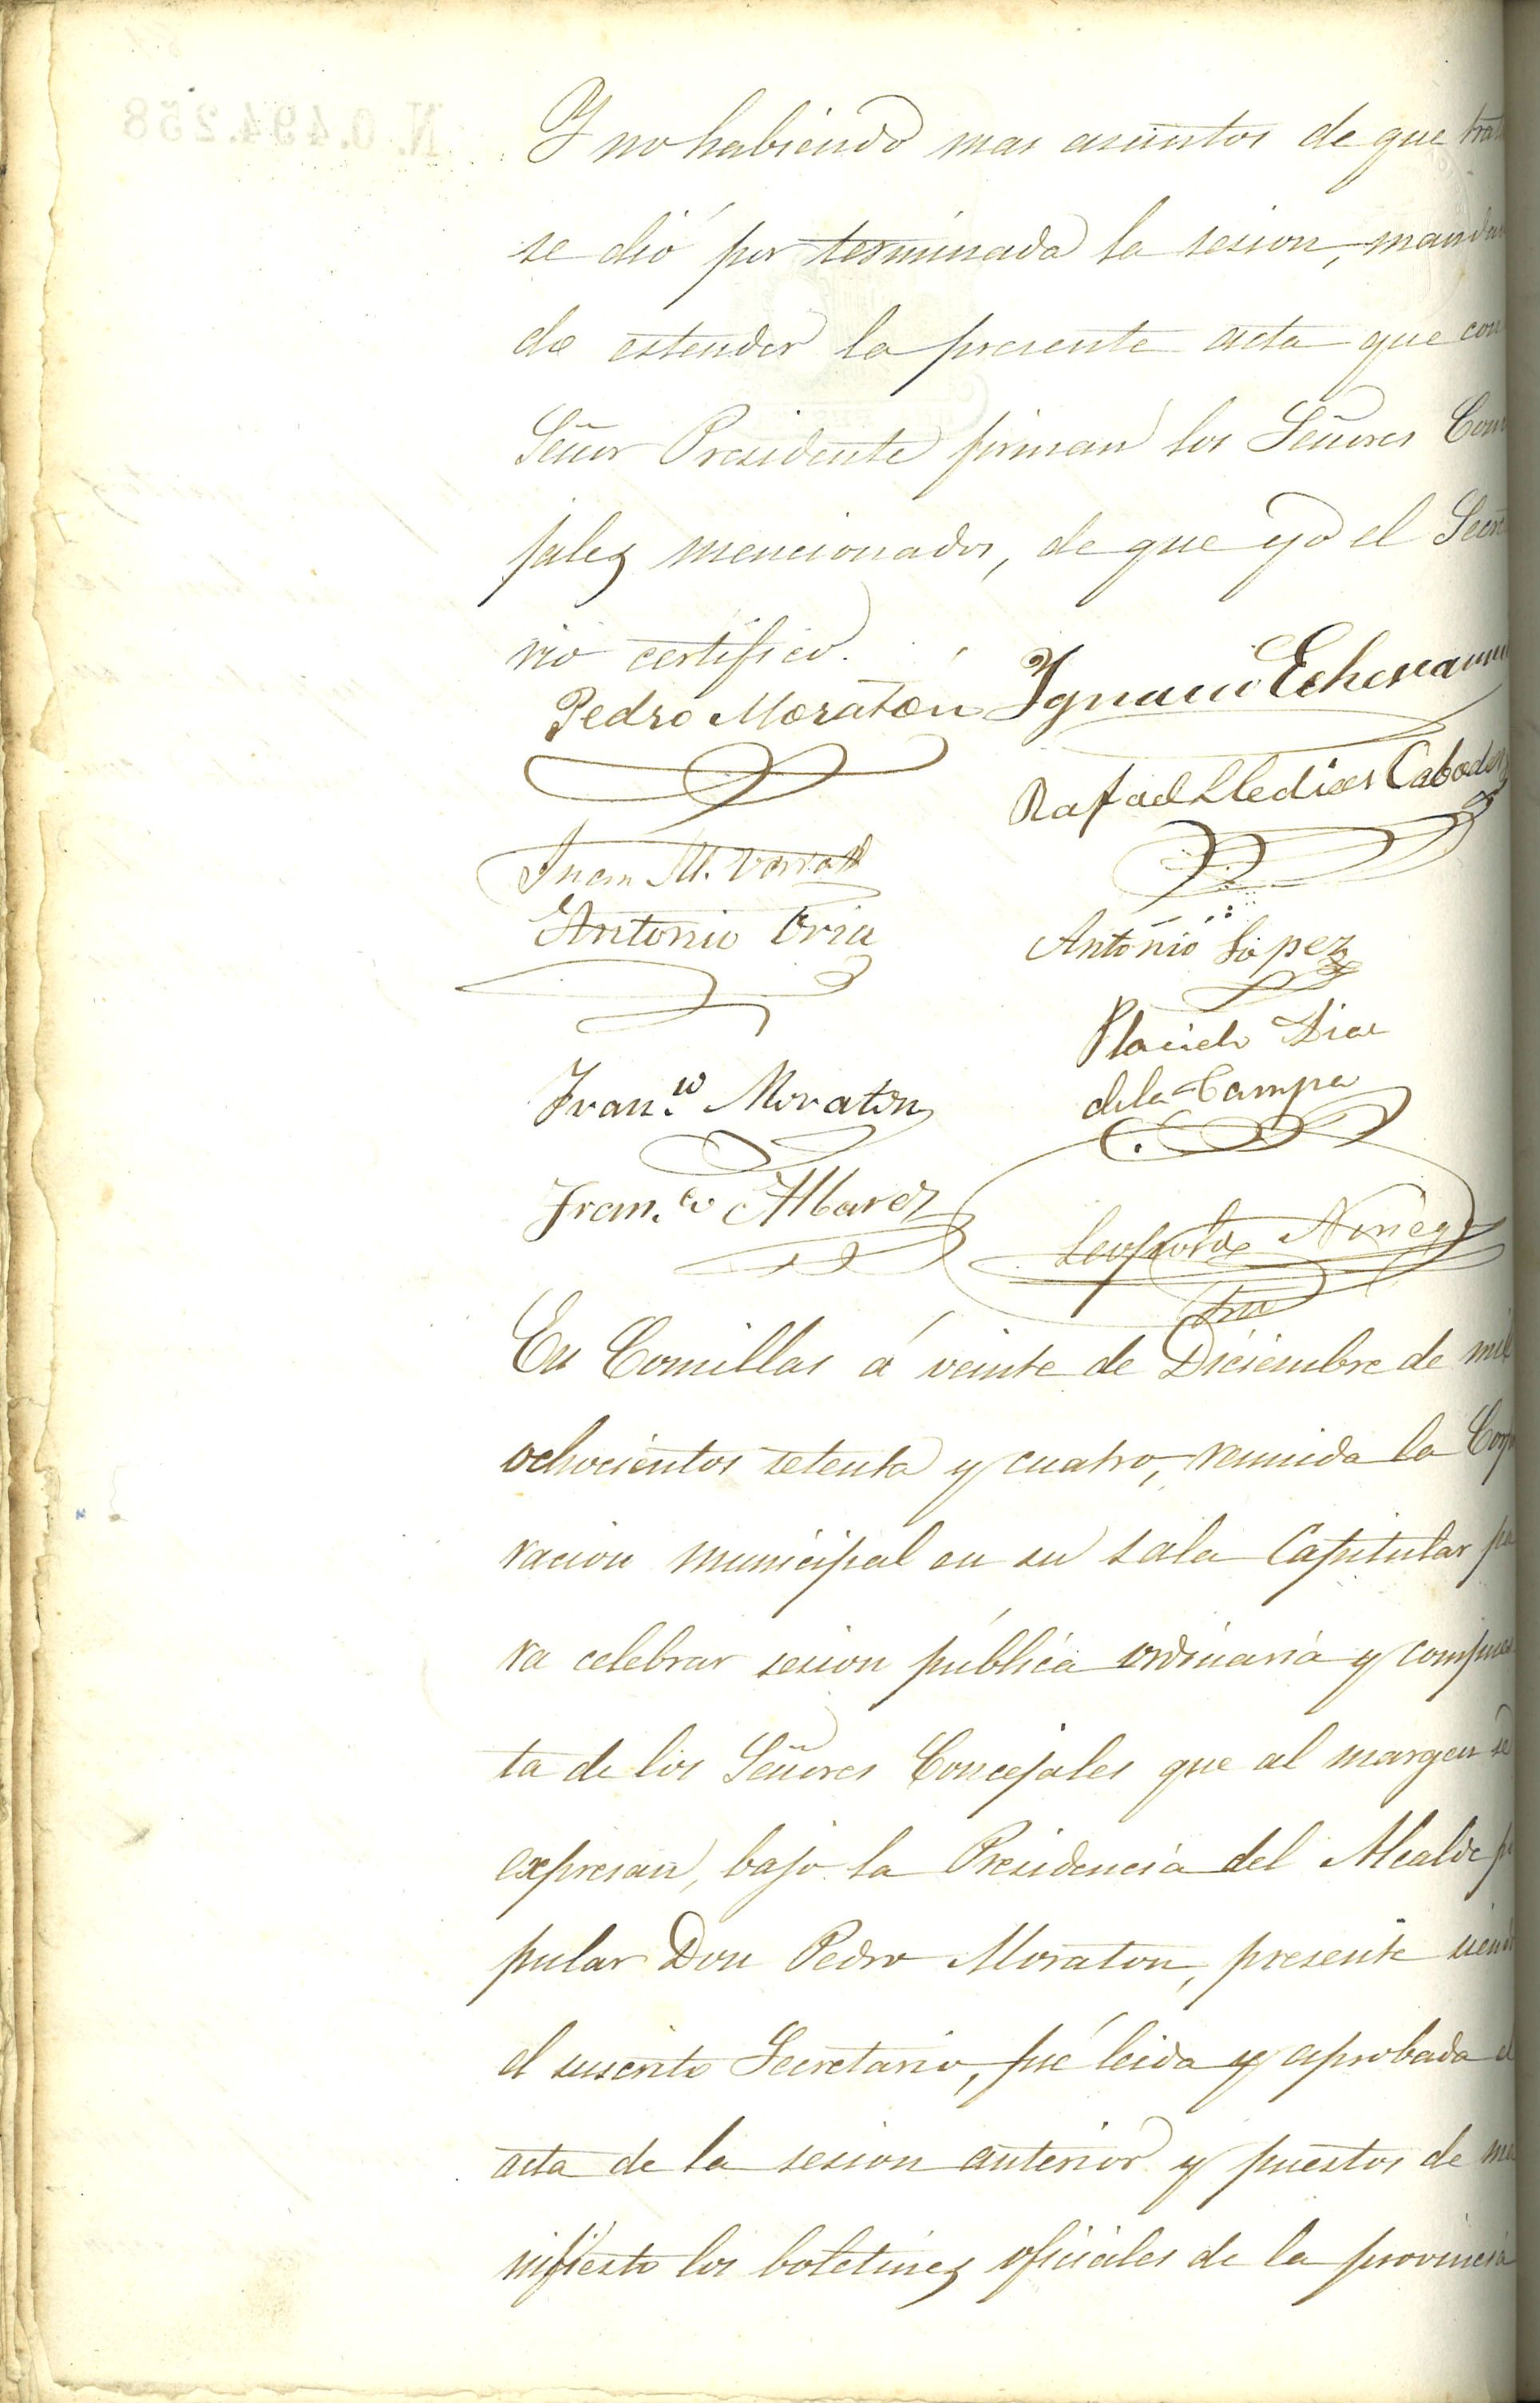 Y no habiendo mas asuntos de que trat
se dió por terminada la sesion, mandan
do estender la presente acta que con
Señor Presidente firman los Señores Conc
jales mencionados, de que yo el Secret
rio certifico.
Pedro Moratón Ignacio Echevarria
Rafael Lledias Cabada
Juan M.
Antonio Oria
Antonio Lopez
Placido Diaz
de la Campa
Fran.co Moraton
Fran.co Albarez
Leopoldo Noriega
Srio
En Comillas á veinte de Diciembre de mil
ochocientos setenta y cuatro, reunida la Corpo
racion municipal en su sala Capitular pa
ra celebrar sesion pública ordinaria y compues
ta de los Señores Concejales que al margen se
expresan, bajo la Presidencia del Alcalde po
pular Don Pedro Moraton, presente siendo
el suscrito Secretario, fué leida y aprobada el
acta de la sesion anterior y puestos de ma
nifiesto los boletines oficiales de la provincia